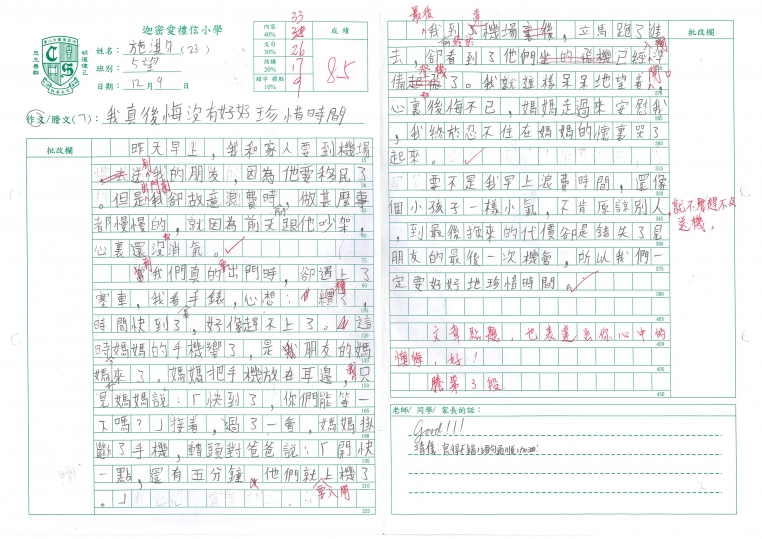 迦密愛禮信小學
姓名：施淇久（23）
班別：5望
日期：12月9日
內容 40% 33
文句 30% 26
結構 20% 17
錯字 標點 10% 9
成績
85
作文/謄文(7)：我真後悔沒有好好珍惜時間
批改欄
昨天早上，我和家人要到機場
送我的朋友，因為他要移民了
。但是我卻故意浪費時，做甚麼事
都慢慢的，就因為前天跟他吵架，
心裏還沒消氣。
當我們真的出門時，卻遇上了
塞車，我看手錶，心想：糟了，
時間快到了，好像趕不上了。這
時媽媽的手機響了，是我朋友的媽
媽來了。媽媽把手機放在耳邊，只
見媽媽說：「快到了，你們能等一
下嗎？」接着，過了一會，媽媽掛
斷了手機，轉頭對爸爸說：「開快
一點，還有五分鐘，他們就上機了
。」
要入閘
批改欄
最後
我到了機場後，立馬跑了進
去，卻看到了他們坐的飛機已經準
備起飛了。我就這樣呆呆地望着，
心裏後悔不已，媽媽走過來安慰我
，我終於忍不住在媽媽的懷裏哭了
起來。
要不是我早上浪費時間，還像
個小孩子一樣小氣，不肯原諒別人
，到最後換來的代價卻是錯失了見
朋友的最後一次機會，所以我們一
定要好好地珍惜時間。
就不會趕不及
送機，
文章貼題，也表達出你心中的
懊悔，好！
謄第3段
老師/同學/家長的話：
Good!!!